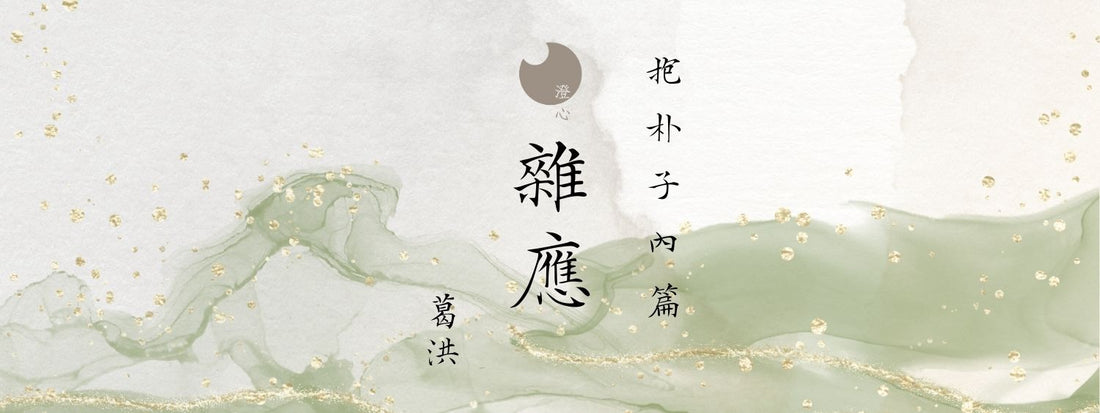 抱朴子內篇
雜應
澄心
葛洪